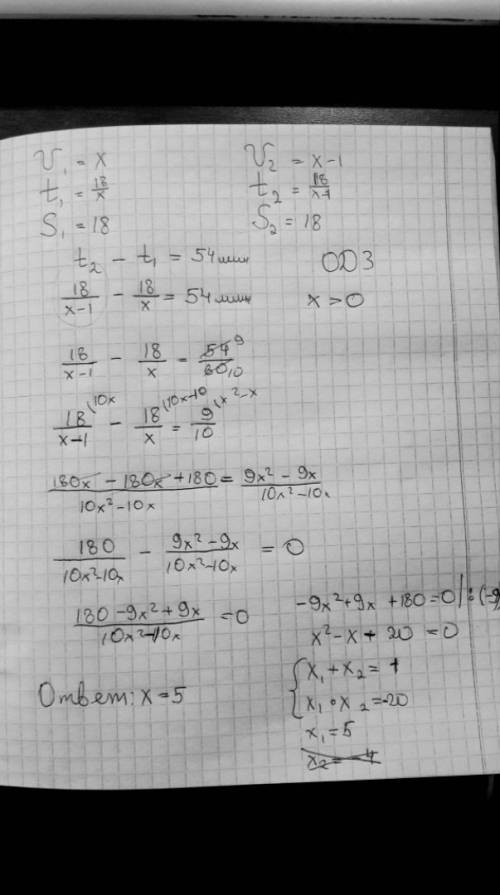 V₁ = x
t₁ = 18/x
S₁ = 18
V₂ = x-1
t₂ = 18/x-1
S₂ = 18
t₂ - t₁ = 54 мин
ОДЗ
18/x-1 - 18/x = 54 мин
x > 0
18/x-1 - 18/x = 54 9/60 10
18\10x/x-1 - 18\10x-10/x = 9\x²-x/10
180x - 180x + 180/10x²-10x = 9x² - 9x/10x²-10x
180/10x²-10x - 9x²-9x/10x²-10x = 0
180-9x²+9x/10x²-10x = 0
-9x²+9x+180=0|:(-9
x²-x+20=0
{x₁+x₂=1
x₁•x₂=-20
x₁=5
x₂=-4
Ответ: x=5